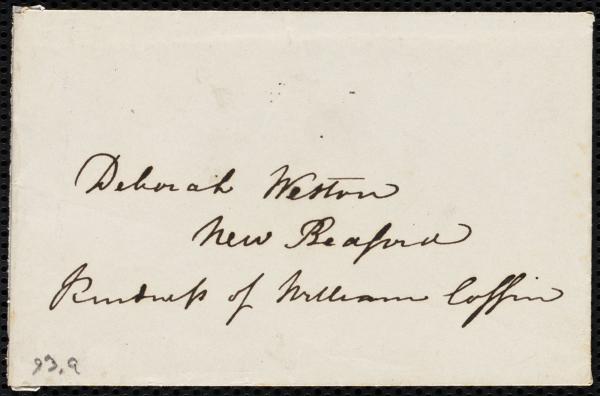 Deborah Weston
New Bedford
Kindness of William Coffin
93.9